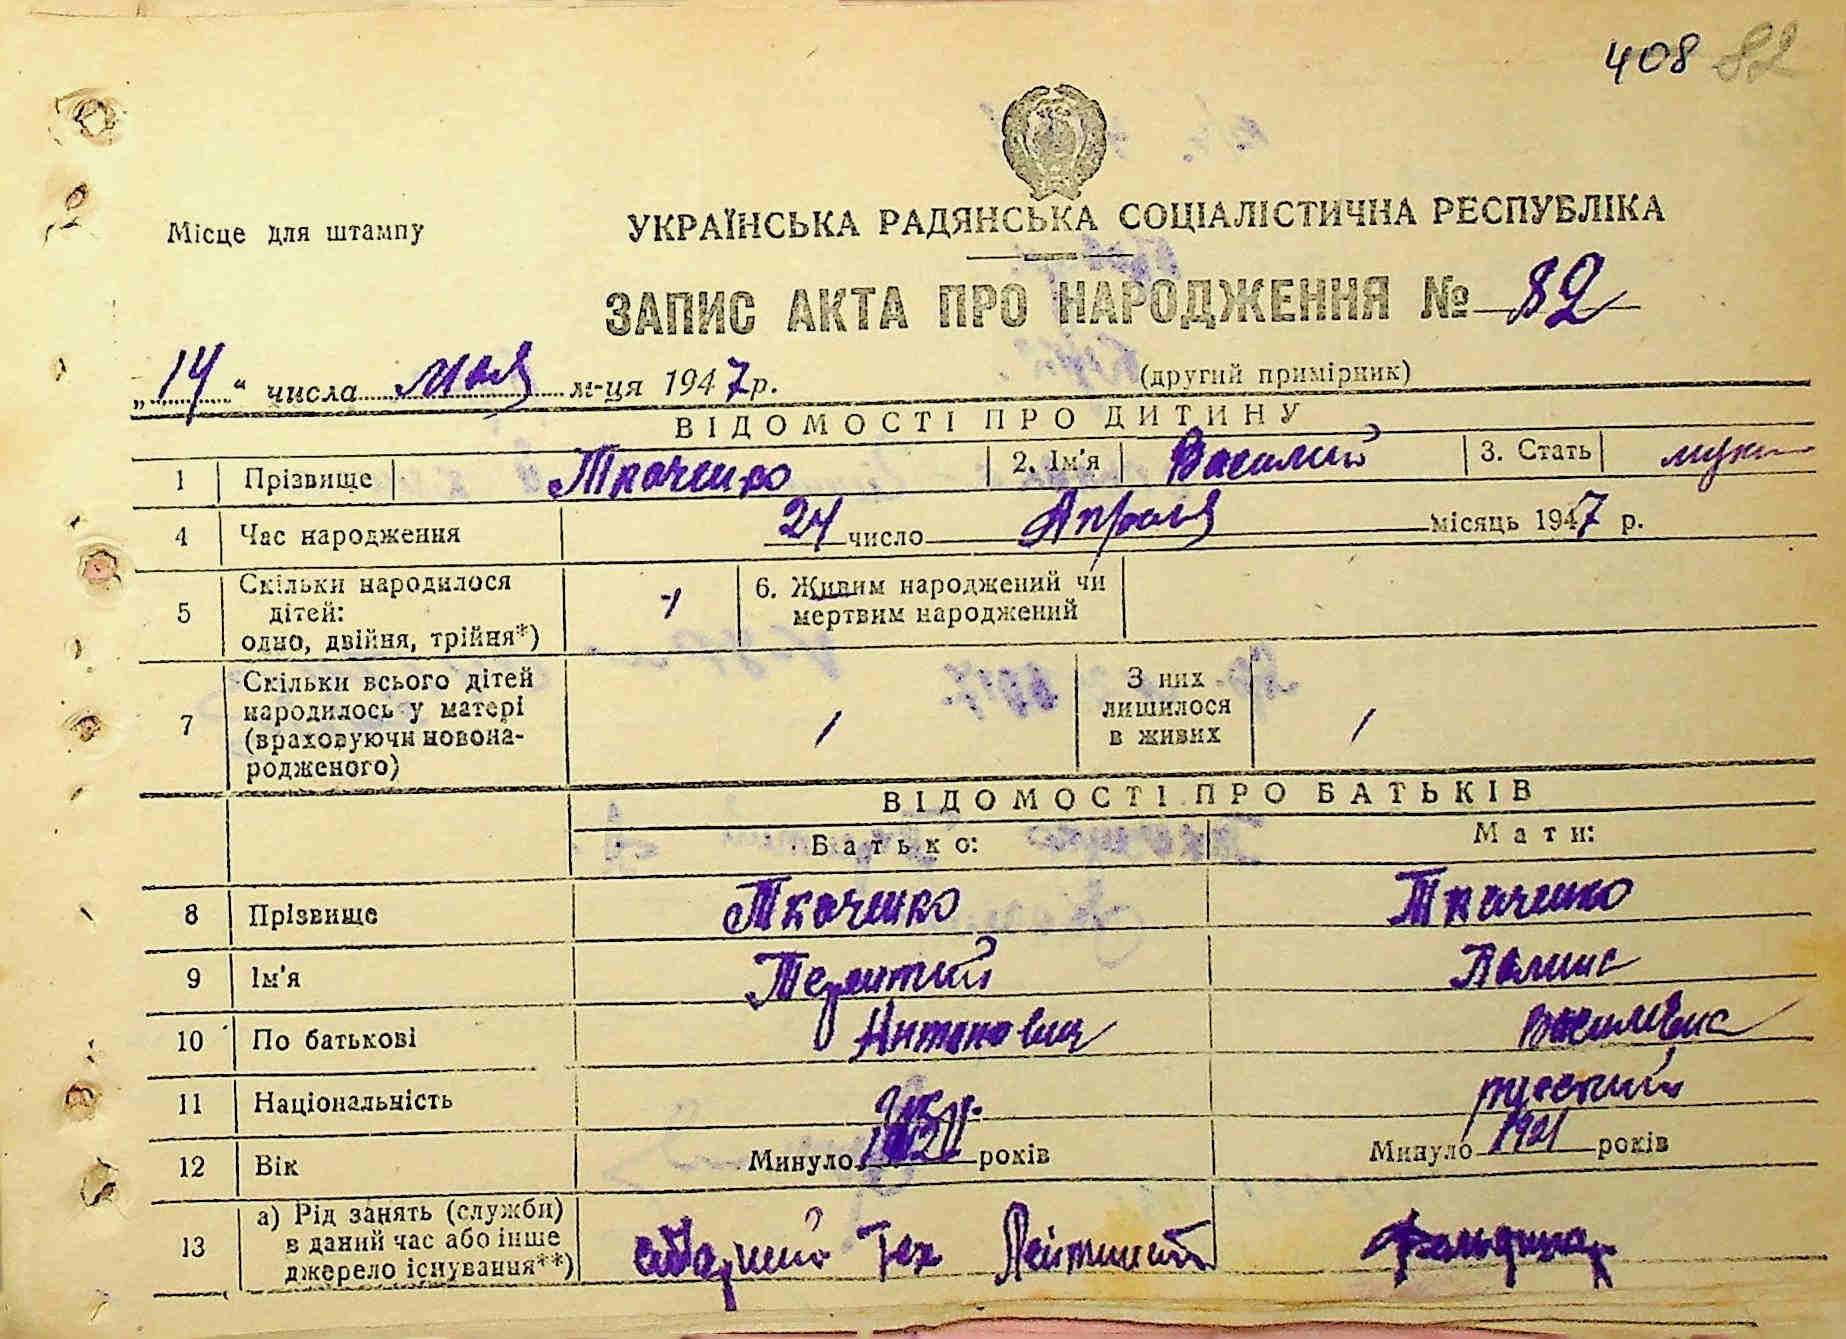 408 82
Місце для штампу
УКРАЇНСЬКА РАДЯНСЬКА СОЦІАЛІСТИЧНА РЕСПУБЛІКА
ЗАПИС АКТА ПРО НАРОДЖЕННЯ № 82
„14“ числа мая м-ця 1947 р. (другий примірник)
ВІДОМОСТІ ПРО ДИТИНУ
1 Прізвище Ткаченко 2. Ім'я Василий 3. Стать муж
4 Час народження 24 число Апреля місяць 1947 р.
5 Скільки народилося дітей: одно, двійня, трійня*) 1 6. Живим народжений чи мертвим народжений
7 Скільки всього дітей народилось у матері (враховуючи новонародженого) 1 З них лишилося в живих 1
ВІДОМОСТІ ПРО БАТЬКІВ
Батько: Мати:
8 Прізвище Ткаченко Ткаченко
9 Ім'я Терентий
10 По батькові Антонович Василевна
11 Національність укр. русский
12 Вік Минуло років Минуло 1921 років
13 а) Рід занять (служби) в даний час або інше джерело існування**) Старший Тех Лейтинант